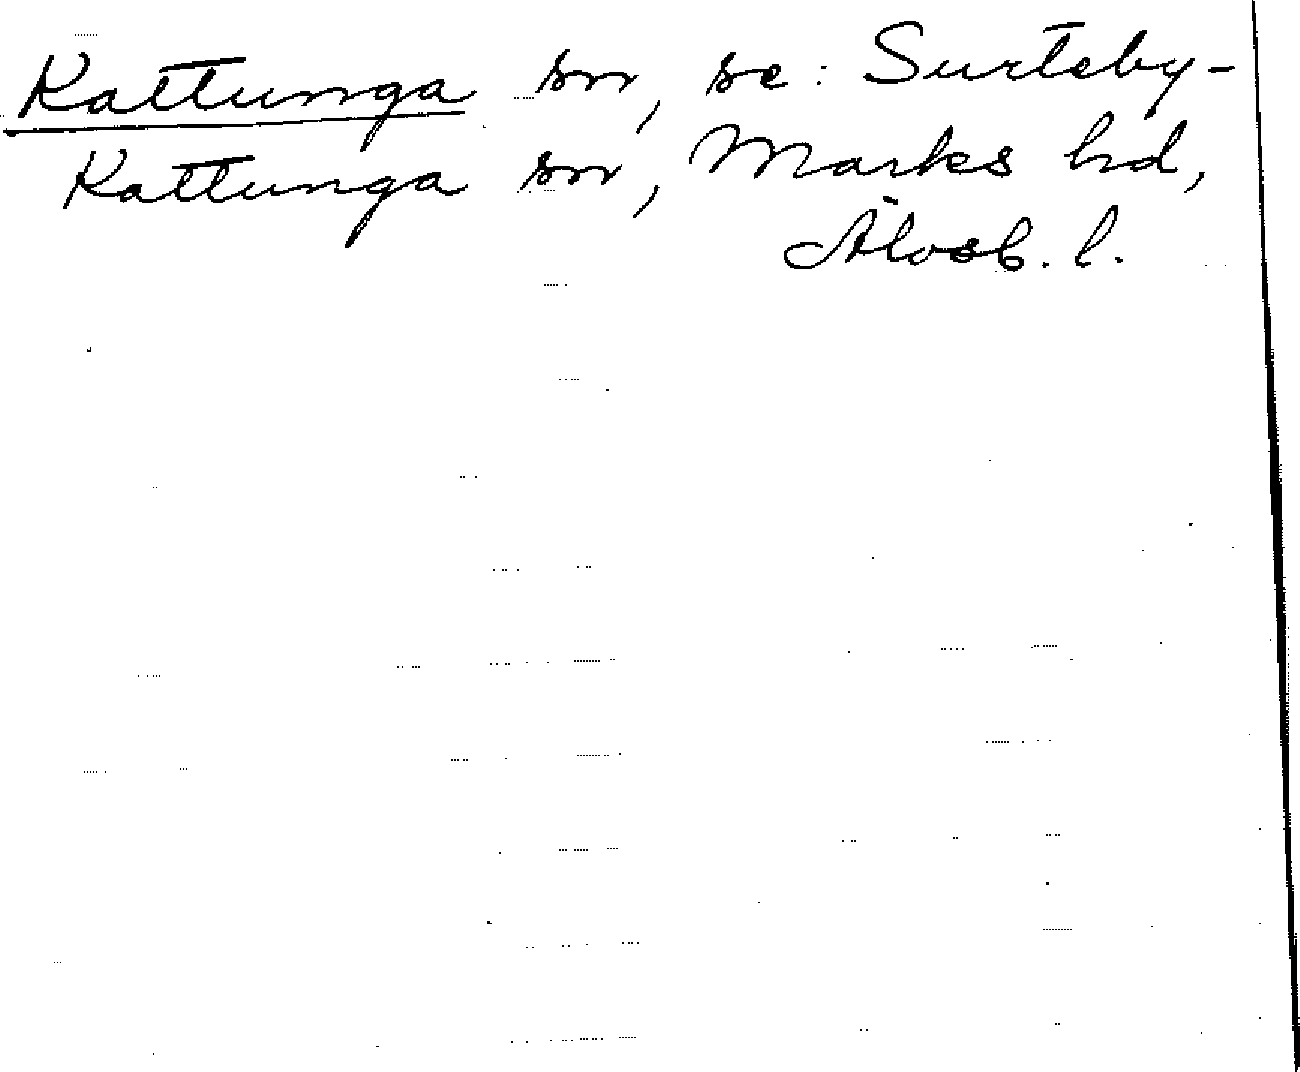 Kattunga sn, se: Surteby-
Kattunga sn, Marks hd,
Älvsb. l.